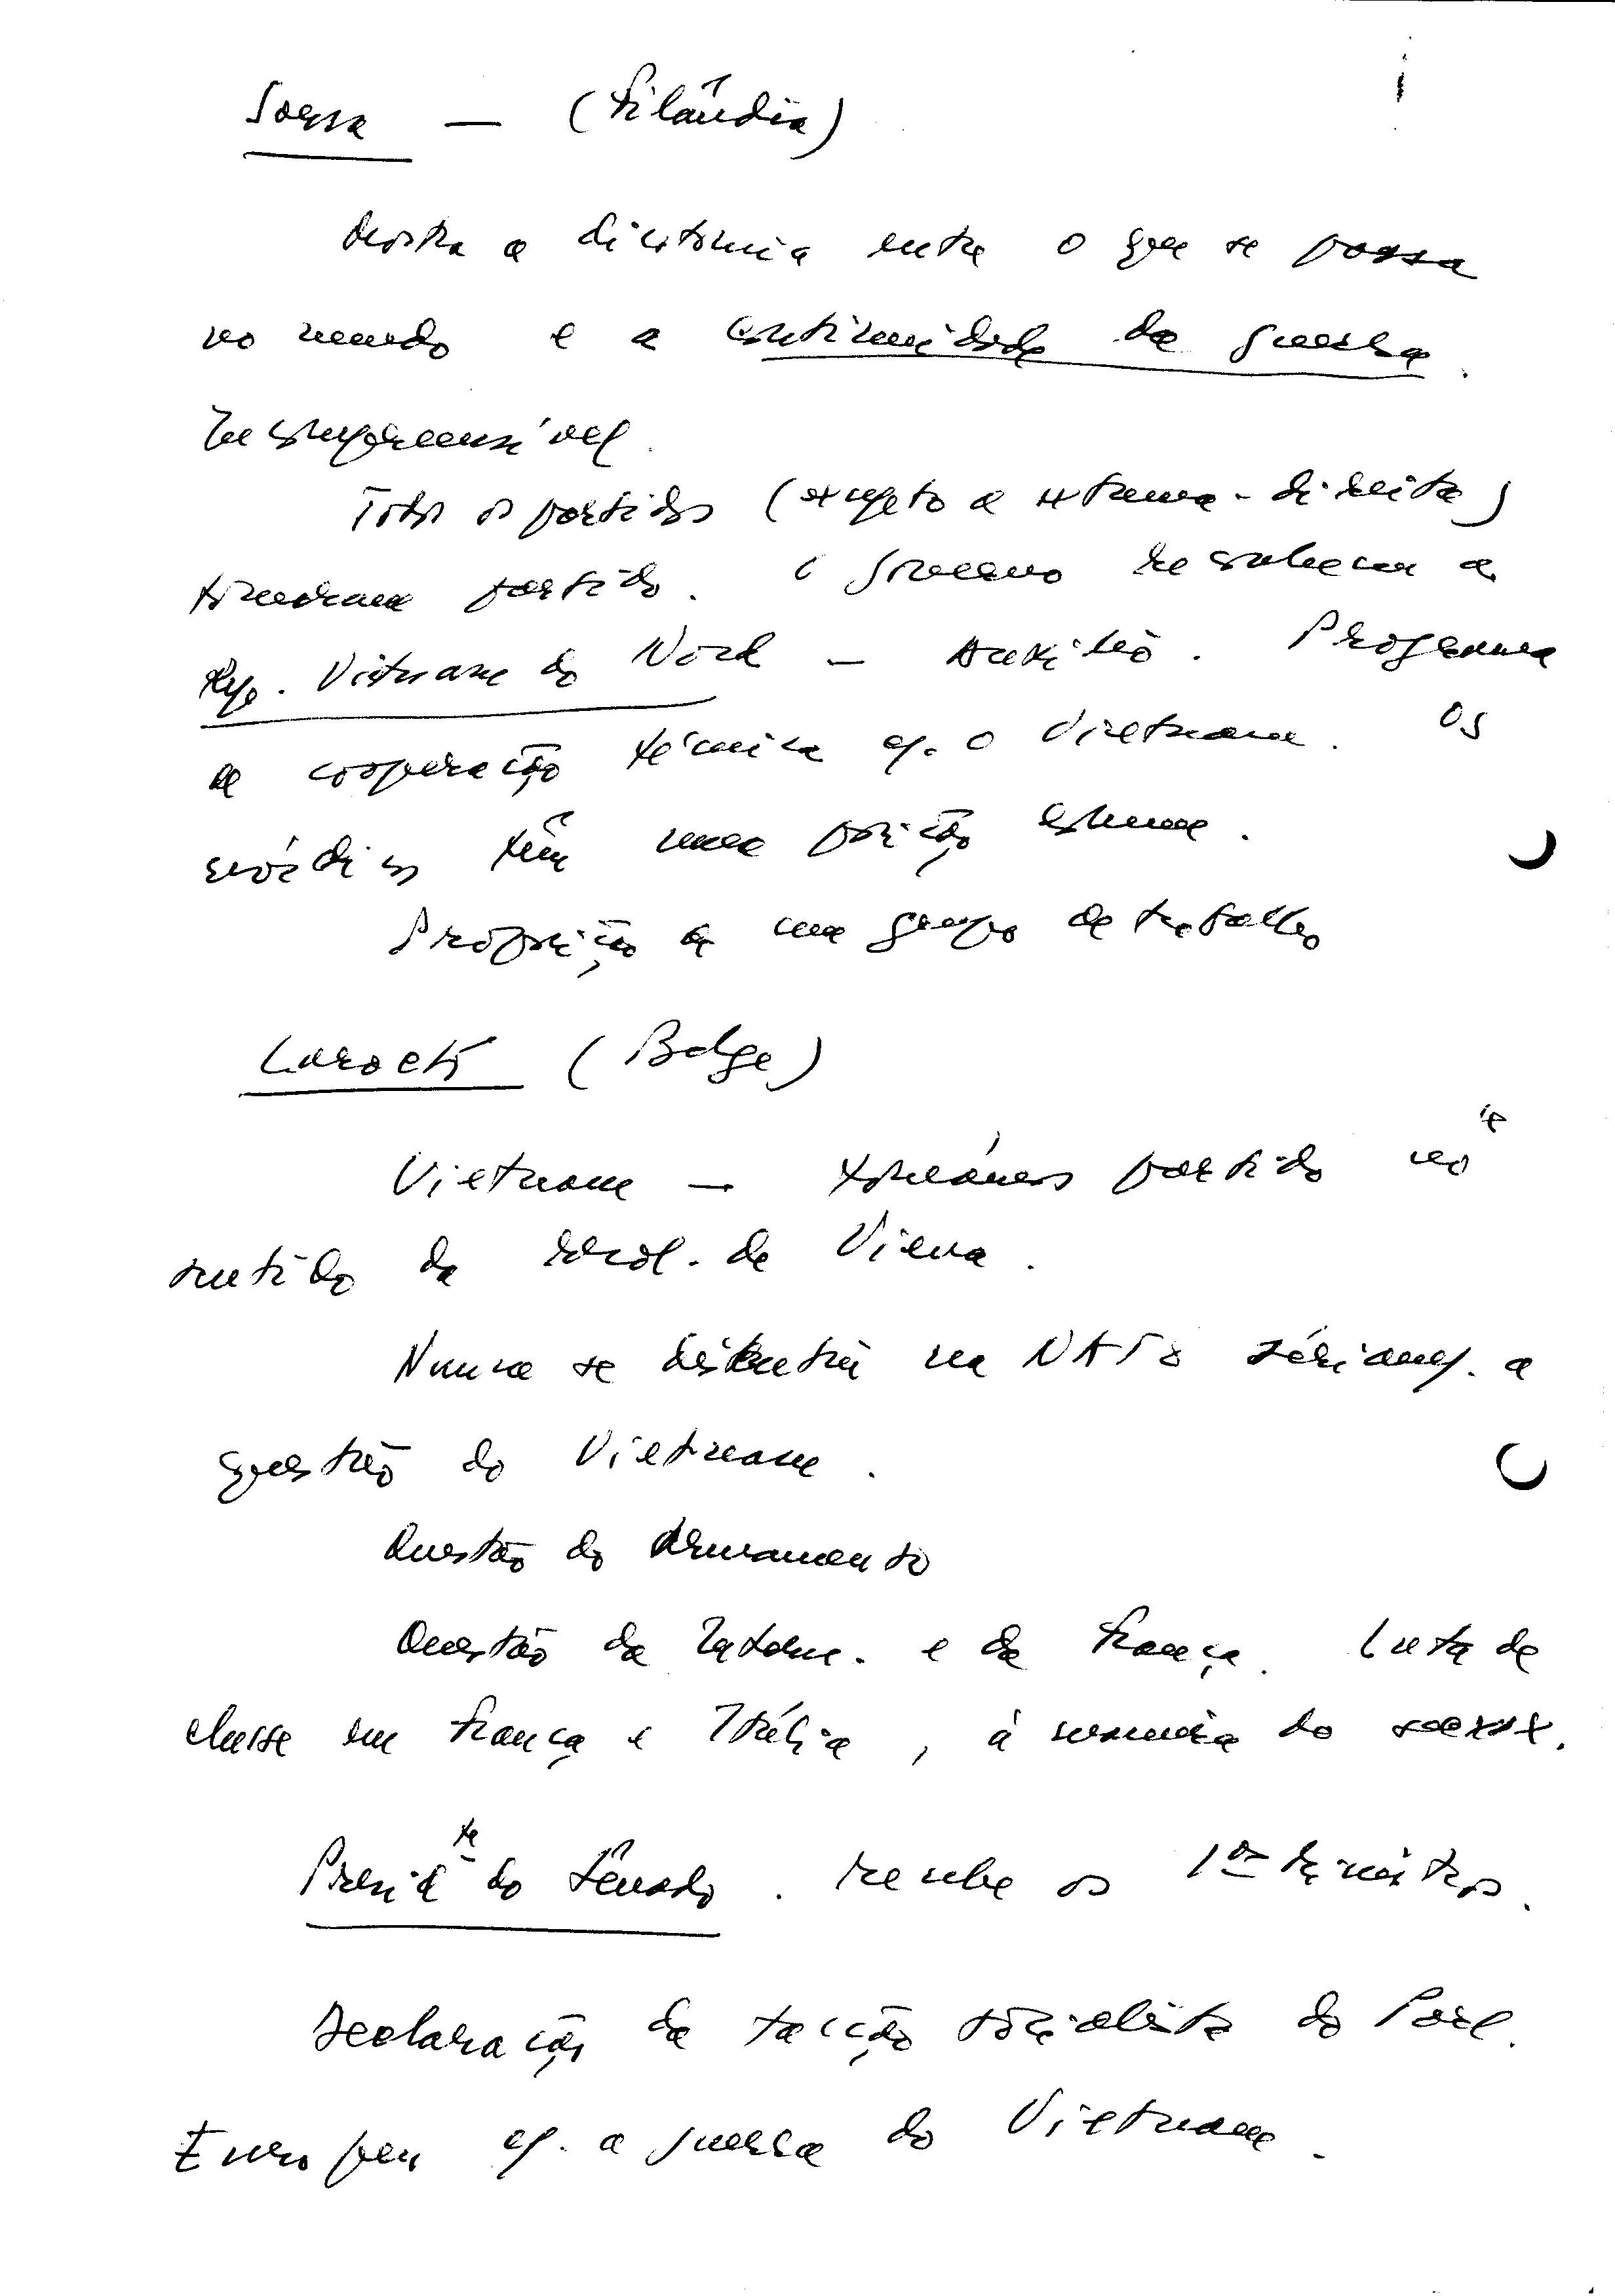 Sorsa — (Filândia)
Mostra a dicotomia entre o que se passa
no mundo e a continuidade da guerra.
Incompreensível.
Todos os partidos (excepto a extrema-direita)
tomaram partido. O governo reconhecer a
Rep. Vietname do Nord — Auxílio. Programa
de cooperação técnica c/. o Vietname. Os
nórdicos têm uma posição comum.
Proposição de um grupo de trabalho
(Belge)
Vietname — tomámos partido no
sentido da resol. de Viena.
Nunca se discutiu na NATO sèriam/. a
questão do Vietname.
Questão do Armamento
Questão da Intern. e da França. Luta de
classe em França e Itália, à
Presid.te do Senado. recebe os 1os Ministros.
Declaração da facção socialista do Parl.
Europeu c/. a guerra do Vietname.